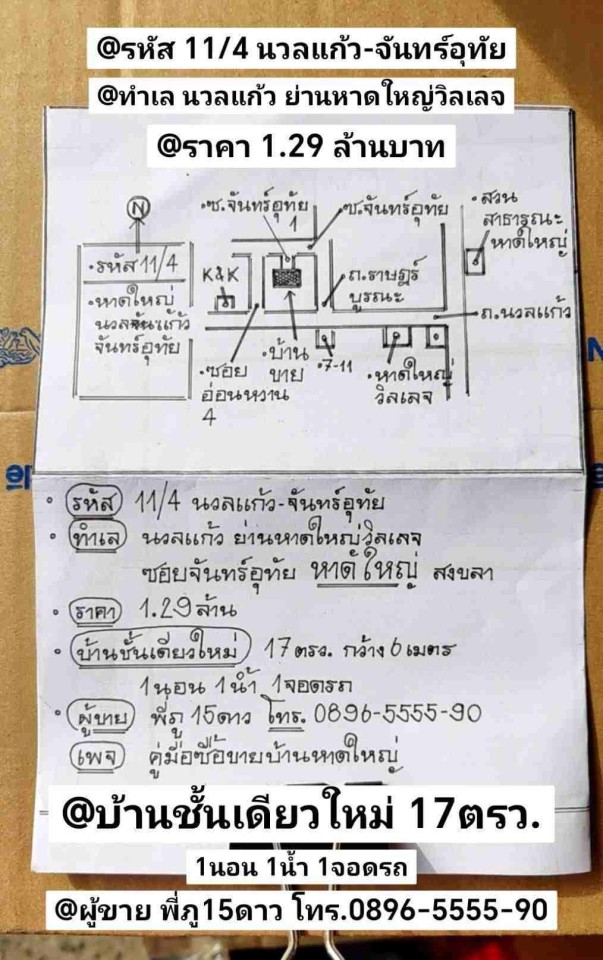 @รหัส 11/4 นวลแก้ว-จันทร์อุทัย
@ทำเล นวลแก้ว ย่านหาดใหญ่วิลเลจ
@ราคา 1.29 ล้านบาท
N
•รหัส 11/4
•หาดใหญ่
นวลจันแก้ว
จันทร์อุทัย
•ซ.จันทร์อุทัย
1
•ซ.จันทร์อุทัย
•สวน
สาธารณะ
หาดใหญ่
K&K
•ถ.ราษฎร์
บูรณะ
•ถ.นวลแก้ว
•ซอย
อ่อนหวาน
4
•บ้าน
ขาย
•7-11
•หาดใหญ่
วิลเลจ
• รหัส 11/4 นวลแก้ว-จันทร์อุทัย
• ทำเล นวลแก้ว ย่านหาดใหญ่วิลเลจ
ซอยจันทร์อุทัย หาดใหญ่ สงขลา
• ราคา 1.29 ล้าน
• บ้านชั้นเดียวใหม่ 17 ตรว. กว้าง 6 เมตร
1 นอน 1 น้ำ 1 จอดรถ
• ผู้ขาย พี่ภู 15 ดาว โทร. 0896-5555-90
เพจ คู่มือซื้อขายบ้านหาดใหญ่
@บ้านชั้นเดียวใหม่ 17ตรว.
1นอน 1น้ำ 1จอดรถ
@ผู้ขาย พี่ภู15ดาว โทร.0896-5555-90